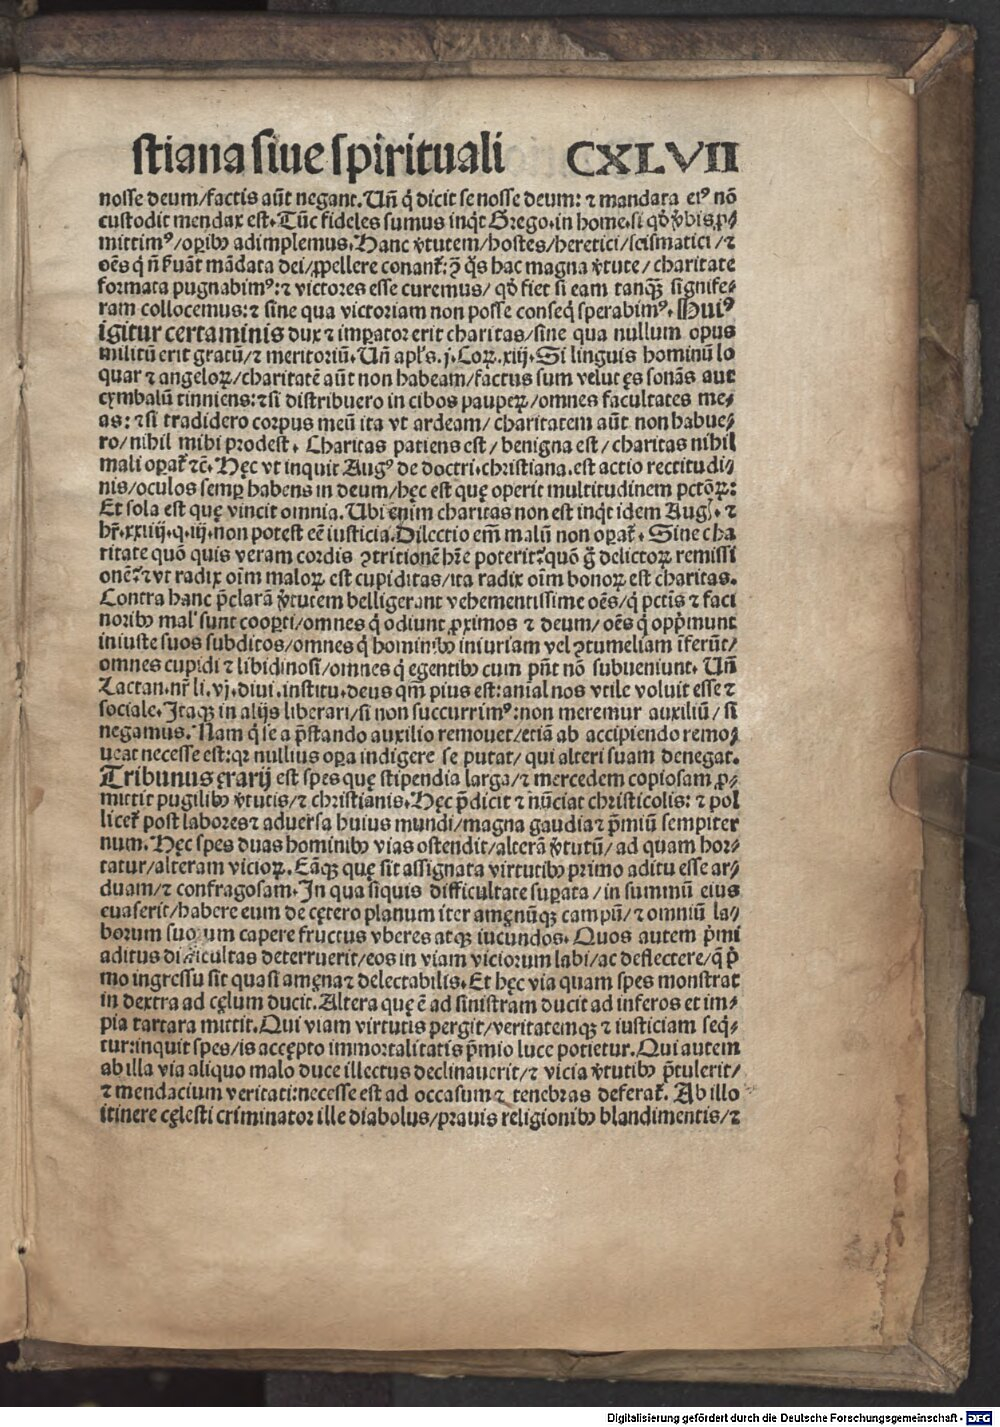 stiana siue spirituali CXLVII
nosse deum/factis aūt negant. Uñ q̇ dicit se nosse deum: ⁊ mandata eiꝰ nō
custodit mendax est. Tūc fideles sumus inq̇t Grego. in home. si qḋ v̇bis ꝓ⸗
mittimꝰ/oꝑibꝫ adimplemus. Hanc v̇tutem/hostes/heretici/scismatici/⁊
oēs q̇ ñ ẜuāt mādata dei/ꝓpellere conant̃: ꝯ̄ q̇s hac magna v̇tute/charitate
formata pugnabimꝰ: ⁊ victores esse curemus/qḋ fiet si eam tanqꝫ signife⸗
ram collocemus: ⁊ sine qua victoriam non posse conseq̇ sperabimꝰ. Huiꝰ
igitur certaminis dux ⁊ imꝑator erit charitas/sine qua nullum opus
militū erit gratū/⁊ meritoriū. Uñ apl's. j. Coꝝ. xiij. Si linguis hominū lo
quar ⁊ angeloꝝ/charitatē aūt non habeam/factus sum velut ęs sonās aut
cymbalū tinniens: ⁊ si distribuero in cibos paupeꝝ/omnes facultates me⸗
as: ⁊ si tradidero corpus meū ita vt ardeam/charitatem aūt non habue⸗
ro/nihil mihi prodest. Charitas patiens est/benigna est/charitas nihil
mali oꝑat̃ ⁊c̄. Hęc vt inquit Augꝰ de doctri. christiana. est actio rectitudi⸗
nis/oculos semꝑ habens in deum/hęc est quę operit multitudinem pctōꝝ:
Et sola est quę vincit omnia. Ubi enim charitas non est inq̇t idem Augꝰ. ⁊
hr̃. xxiiij. q. iij. non potest eē iusticia. Dilectio em̄ malū non oꝑat̃. Sine cha
ritate quō quis veram cordis ꝯtritionē hr̄e poterit? quō g̊ delictoꝝ remissi
onē? ⁊ vt radix oīm maloꝝ est cupiditas/ita radix oīm bonoꝝ est charitas.
Contra hanc p̄clarā v̇tutem belligerant vehementissime oēs/q̇ pctīs ⁊ faci
noribꝫ mal' sunt cooꝑti/omnes q̇ odiunt ꝓximos ⁊ deum/oēs q̇ opp̄imunt
iniuste suos subditos/omnes q̇ hominibꝫ iniuriam vel ꝯtumeliam īferūt/
omnes cupidi ⁊ libidinosi/omnes q̇ egentibꝫ cum p̄nt nō subueniunt. Uñ
Lactan. nr̄ li. vj. diui. institu. deus qm̄ pius est: anīal nos vtile voluit esse ⁊
sociale. Itaqꝫ in alijs liberari/si non succurrimꝰ: non meremur auxiliū/si
negamus. Nam q̇ se a p̄stando auxilio remouet/etiā ab accipiendo remo⸗
ueat necesse est: qꝛ nullius oꝑa indigere se putat/qui alteri suam denegat.
Tribunus ęrarij est spes quę stipendia larga/⁊ mercedem copiosam ꝓ⸗
mittit pugilibꝫ v̇tutis/⁊ christianis. Hęc p̄dicit ⁊ nūciat christicolis: ⁊ pol
licet̃ post labores ⁊ aduersa huius mundi/magna gaudia ⁊ p̄miū sempiter
num. Hęc spes duas hominibꝫ vias ostendit/alterā v̇tutū/ad quam hor⸗
tatur/alteram vicioꝝ. Eāqꝫ quę sit assignata virtutibꝫ primo aditu esse ar⸗
duam/⁊ confragosam. In qua siquis difficultate suꝑata/in summū eius
euaserit/habere eum de cętero planum iter amęnūqꝫ campū/⁊ omniū la⸗
borum suorum capere fructus vberes atqꝫ iucundos. Quos autem p̄mi
aditus difficultas deterruerit/eos in viam viciorum labi/ac deflectere/q̄ p̄
mo ingressu sit quasi amęna ⁊ delectabilis. Et hęc via quam spes monstrat
in dextra ad cęlum ducit. Altera quę ē ad sinistram ducit ad inferos et im⸗
pia tartara mittit. Qui viam virtutis pergit/veritatemqꝫ ⁊ iusticiam seq̇⸗
tur: inquit spes/is accępto immortalitatis p̄mio luce potietur. Qui autem
ab illa via aliquo malo duce illectus declinauerit/⁊ vicia v̇tutibꝫ p̄tulerit/
⁊ mendacium veritati: necesse est ad occasum ⁊ tenebras deferat̃. Ab illo
itinere cęlesti criminator ille diabolus/prauis religionibꝫ blandimentis/⁊
Digitalisierung gefördert durch die Deutsche Forschungsgemeinschaft - DFG